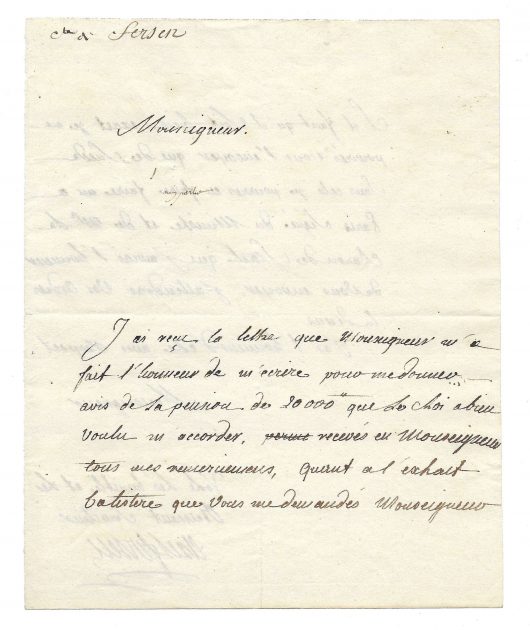 cte de Fersen
Monseigneur.
J'ai reçu la lettre que Monseigneur m'a
fait l'honneur de m'écrire pour me donner
avis de la pension de 20000# que le Roi a bien
voulu m'accorder, recevés en Monseigneur
tous mes remerciemens, quant a l'éxtrait
batistere que vous me demandés Monseigneur